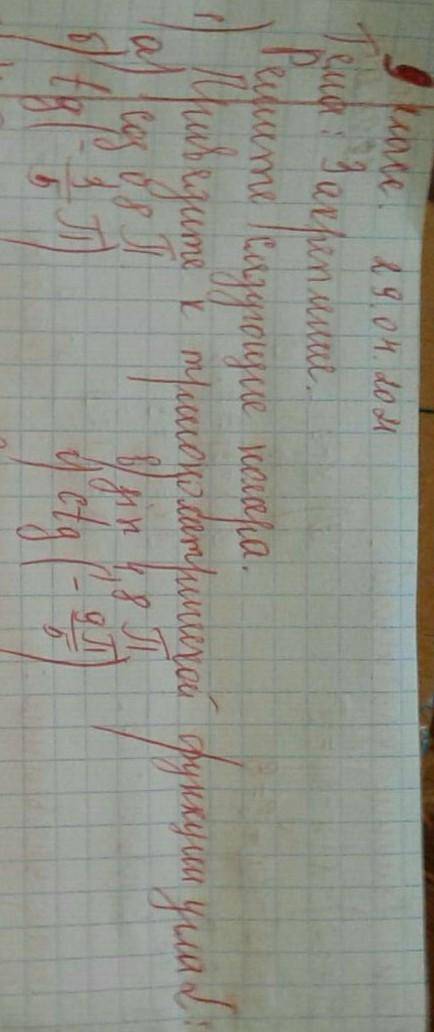 9 класс. 29.04.2021
Тема: Закрепление.
Решите следующие номера.
1) Приведите к тригонометрической функции угла α:
а) cos 0,8 π в) sin 4,8 π
б) tg (- 9/5 π) г) ctg (- 9π/5)